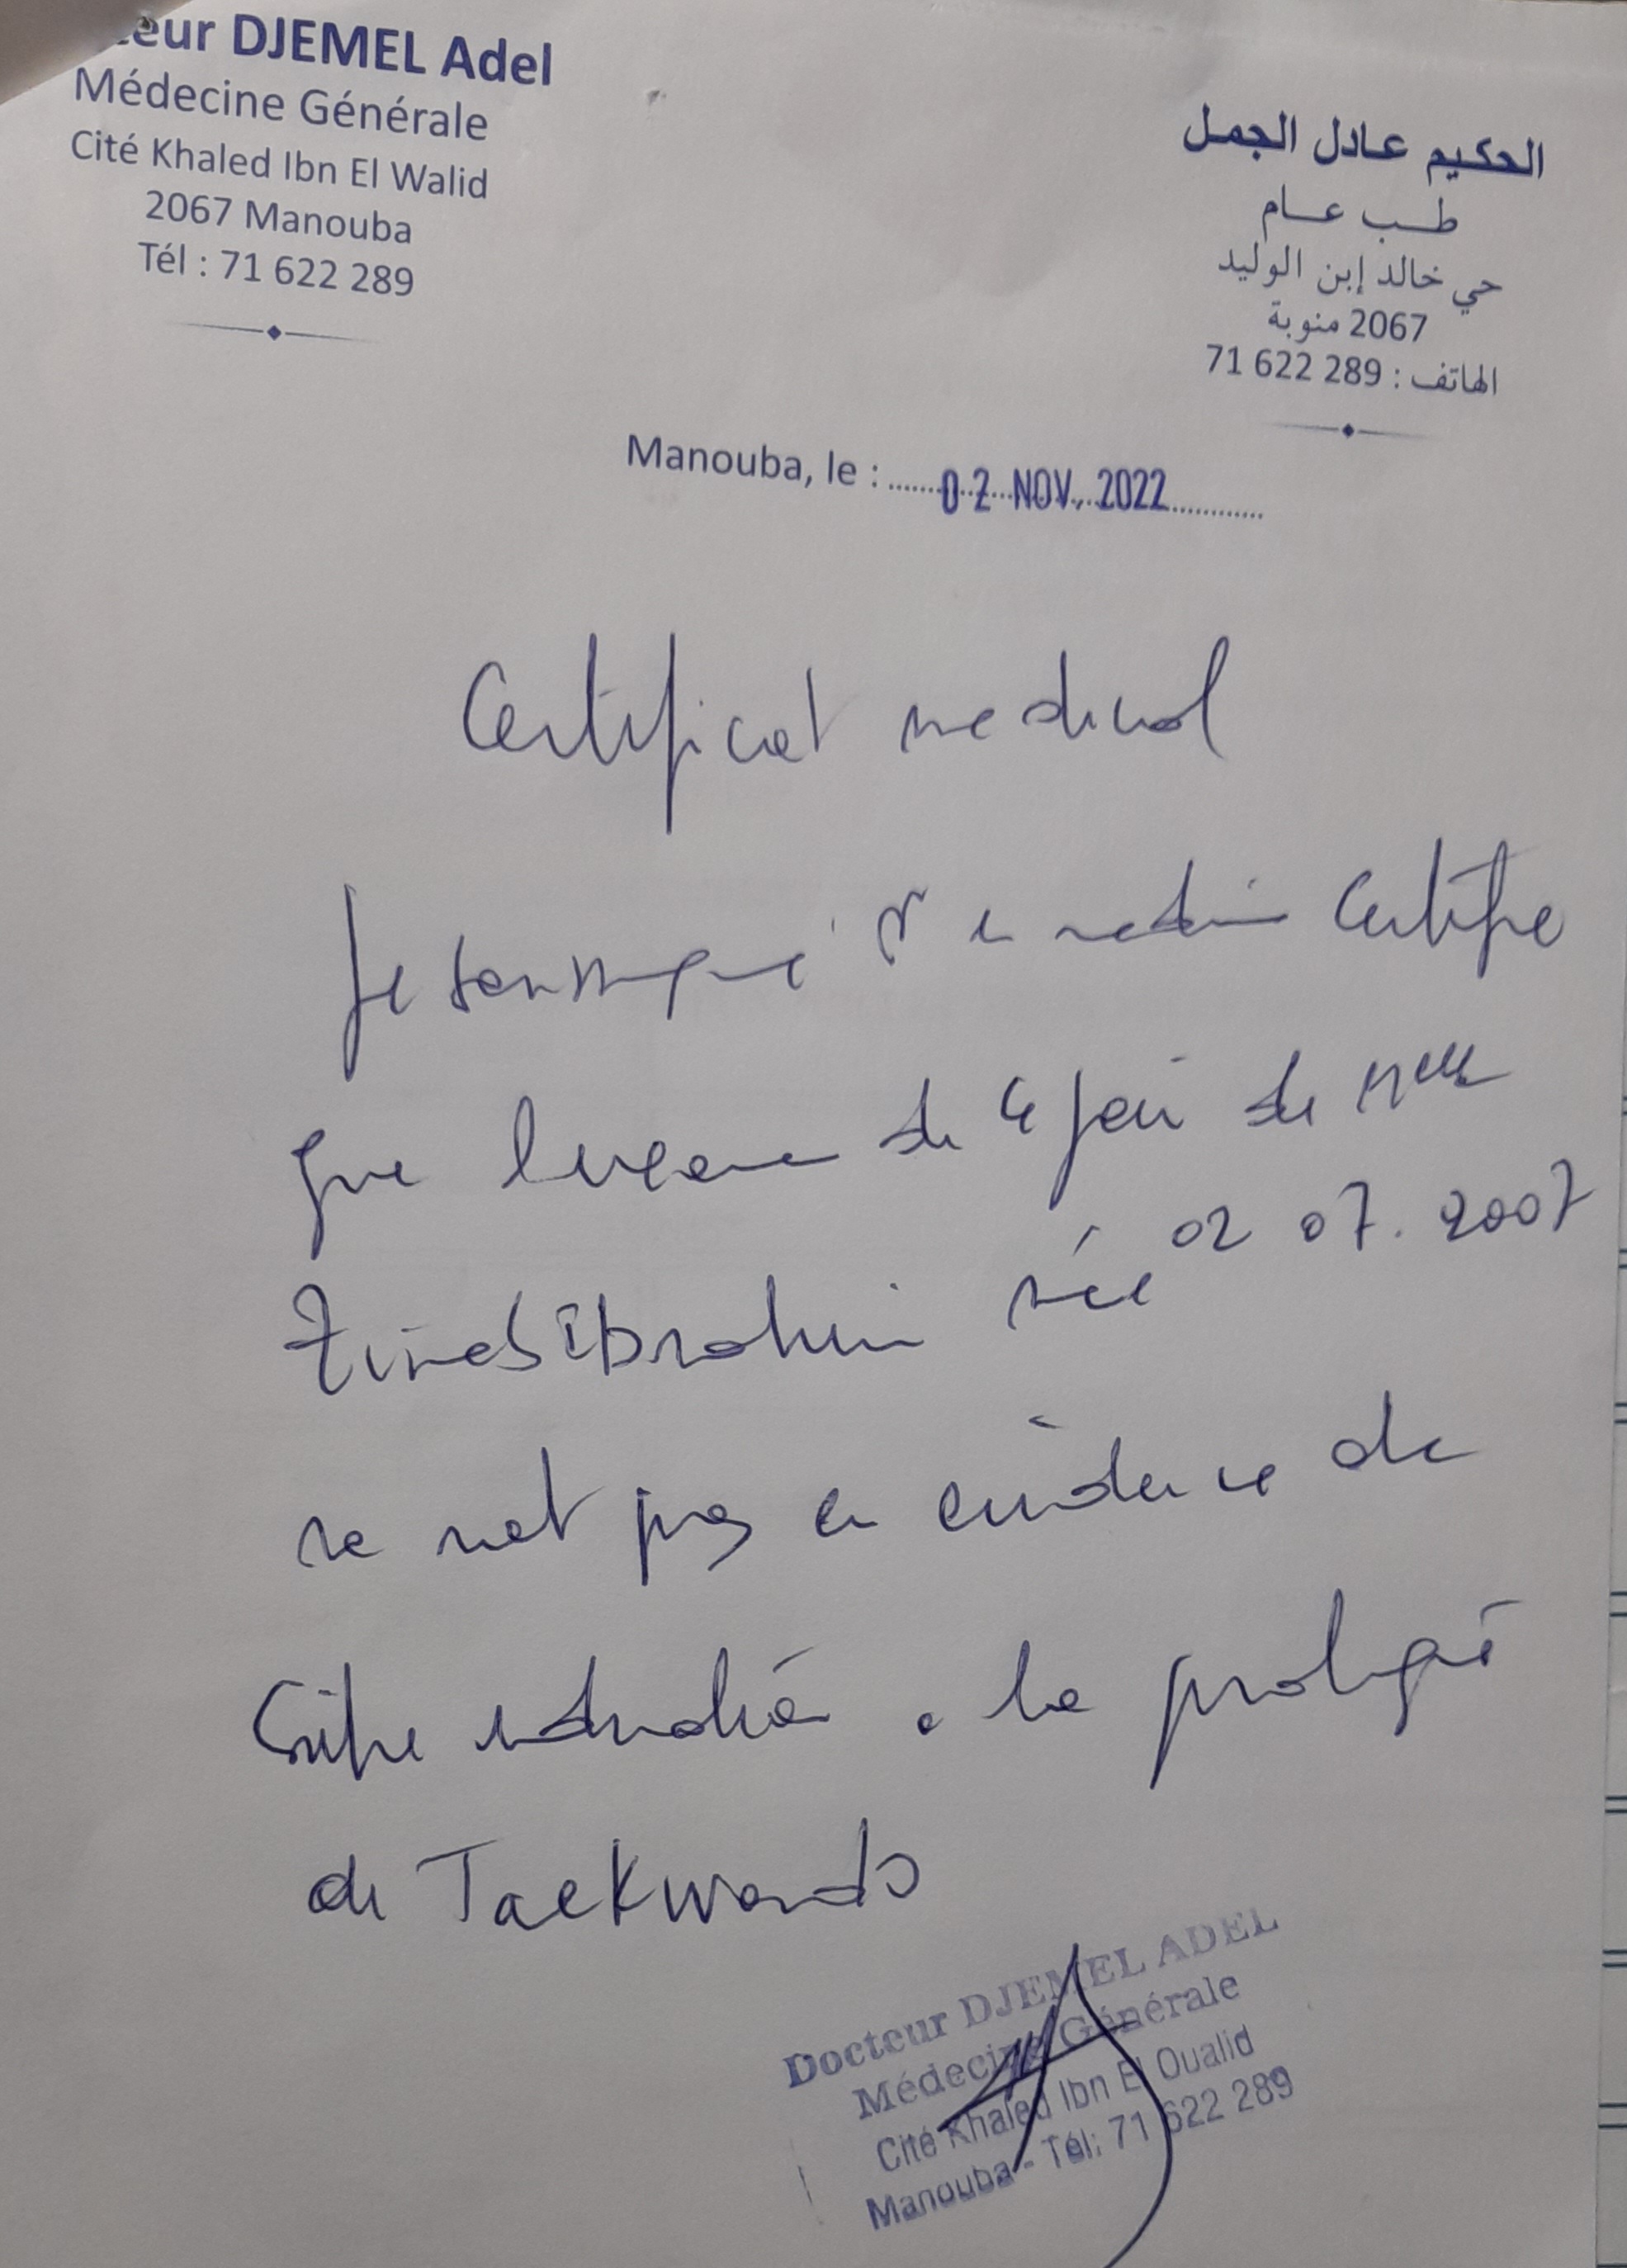 eur DJEMEL Adel
Médecine Générale
Cité Khaled Ibn El Walid
2067 Manouba
Tél : 71 622 289
الحكيم عادل الجمل
طب عام
حي خالد إبن الوليد
2067 منوبة
الهاتف : 289 622 71
Manouba, le : 02 NOV. 2022
Certificat medical
Je soussigné Dr en medecin Certifie
que l'examen de ce jour de Melle
Zineb Ibrahim née 02 07. 2007
ne met pas en evidence de
Contre indication a la pratique
de Taekwondo
Docteur DJEMEL ADEL
Médecine Générale
Cité Khaled Ibn El Oualid
Manouba - Tél: 71 622 289